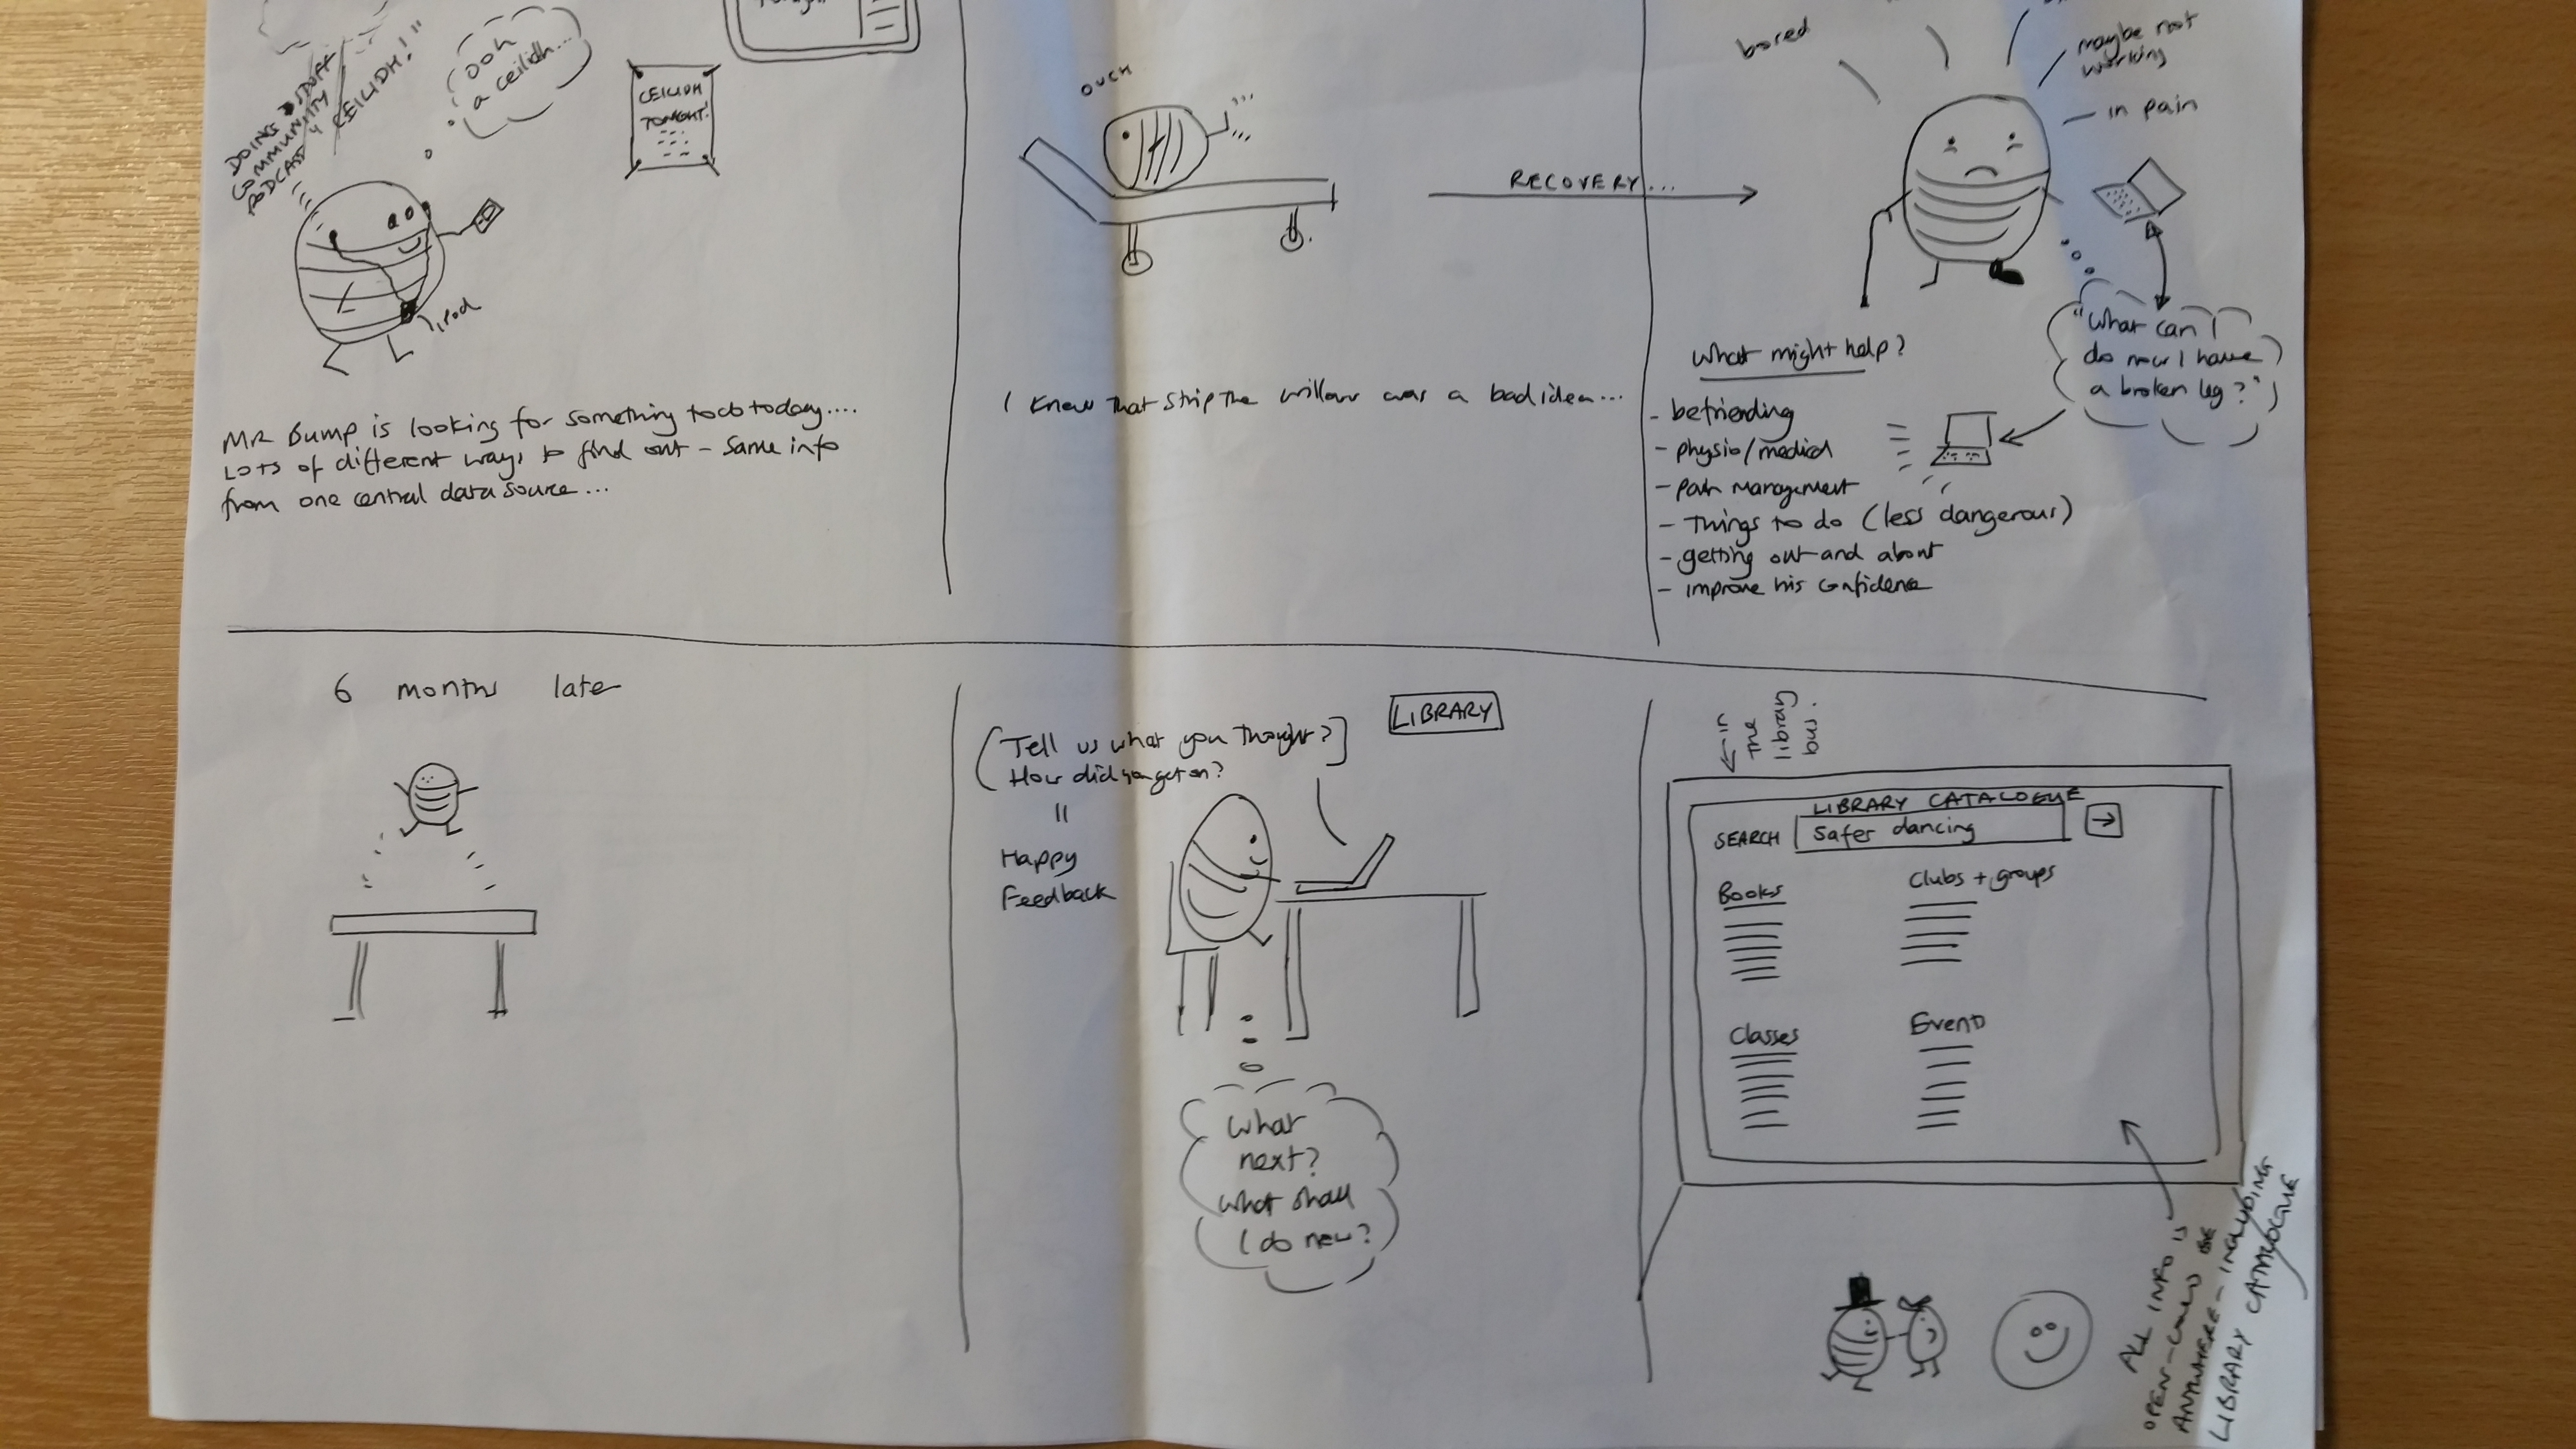 DOING
COMMUNITY STUFF
PODCAST
CEILIDH!"
Ooh
a ceilidh...
CEILIDH
TONIGHT.
ipod
Mr Bump is looking for something to do today....
Lots of different ways to find out - same info
from one central data source....
OUCH
RECOVERY...
I knew that strip the willow was a bad idea....
bored
maybe not
working
in pain
"What can I
do now I have
a broken leg?"
What might help?
- befriending
- physio/medical
- pain management
- Things to do (less dangerous)
- getting out and about
- improve his confidence
6 months late
LIBRARY
(Tell us what you thought?]
How did you get on?
=
Happy
Feedback
What
next?
What shall
I do new?
← in
the
library
bus.
LIBRARY CATALOGUE
SEARCH safer dancing →
Books
Clubs + groups
Classes
Events
ALL INFO IS
OPEN - COULD BE
ANYWHERE - INCLUDING
LIBRARY CATALOGUE